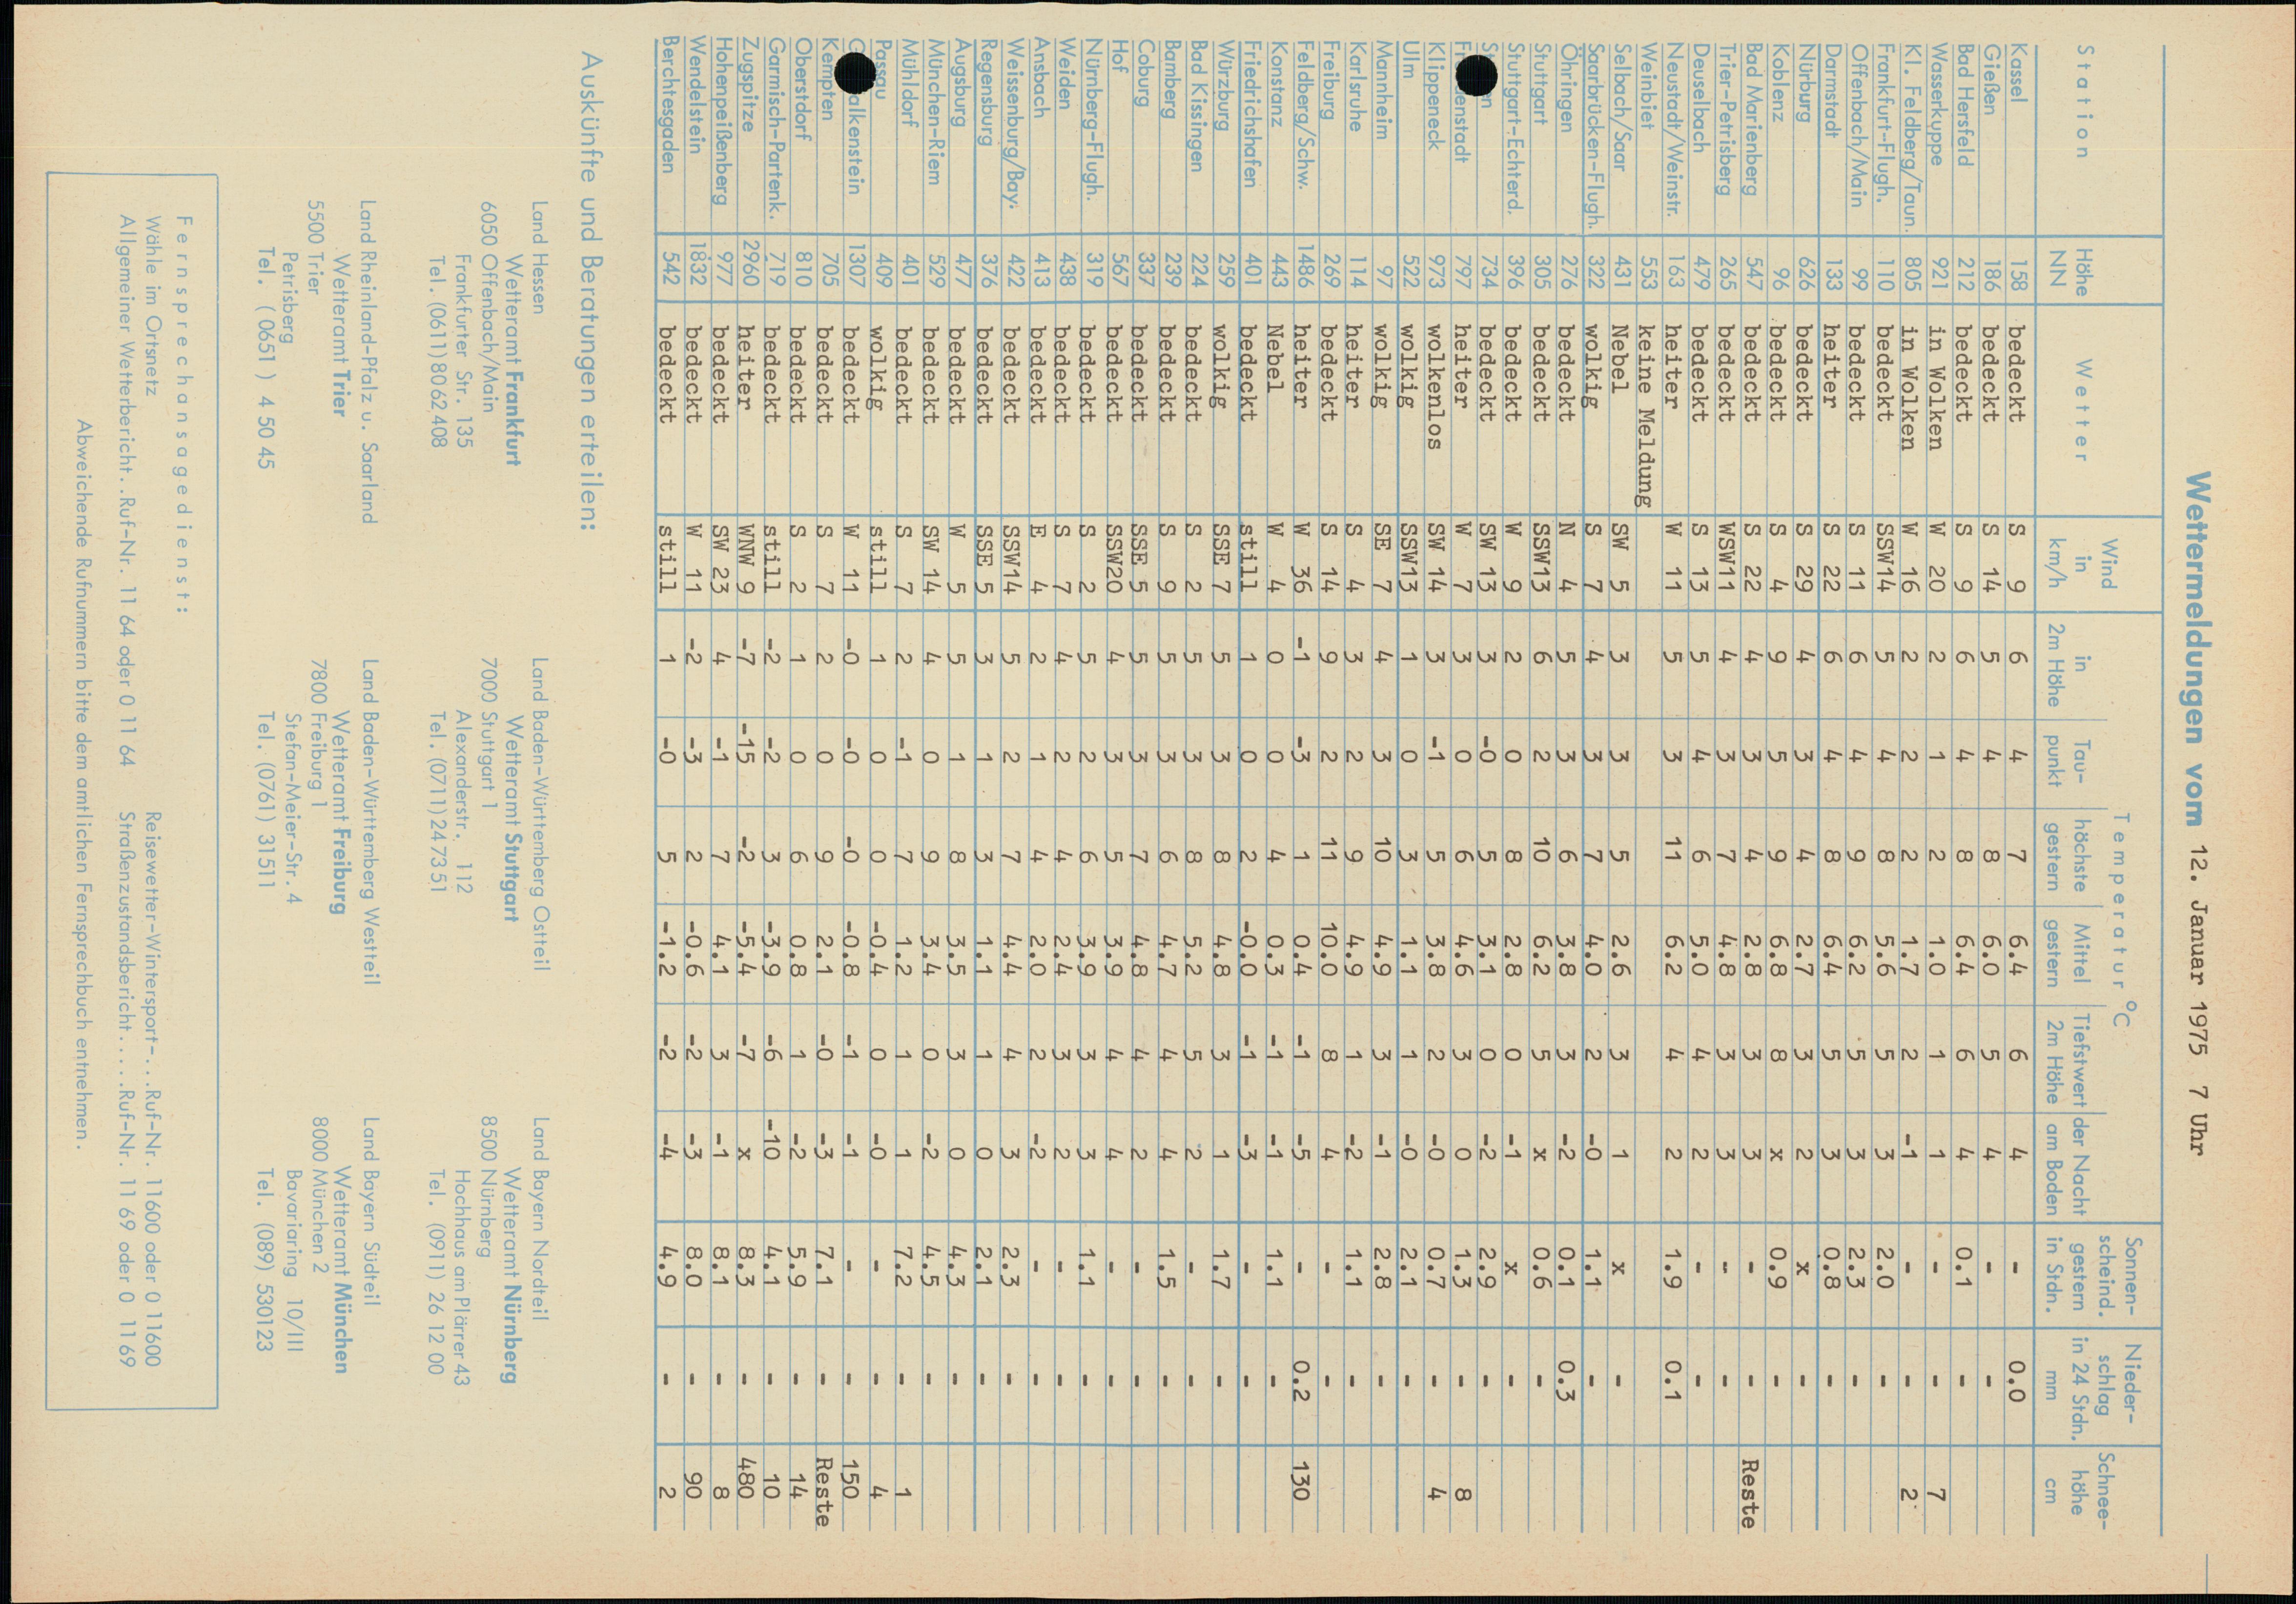 Wettermeldungen vom 12. Januar 1975 7 Uhr
Station Höhe NN Wetter Wind in km/h Temperatur °C Sonnen-scheind. gestern in Stdn. Nieder-schlag in 24 Stdn. mm Schnee-höhe cm
in 2m Höhe Tau-punkt höchste gestern Mittel gestern Tiefstwert der Nacht 2m Höhe am Boden
Kassel 158 bedeckt S 9 6 4 7 6.4 6 4 - 0.0
Gießen 186 bedeckt S 14 5 4 8 6.0 5 4 - -
Bad Hersfeld 212 bedeckt S 9 6 4 8 6.4 6 4 0.1 -
Wasserkuppe 921 in Wolken W 20 2 1 2 1.0 1 1 - - 7
Kl. Feldberg/Taun. 805 in Wolken W 16 2 2 2 1.7 2 -1 - - 2
Frankfurt-Flugh. 110 bedeckt SSW14 5 4 8 5.6 5 3 2.0 -
Offenbach/Main 99 bedeckt S 11 6 4 9 6.2 5 3 2.3 -
Darmstadt 133 heiter S 22 6 4 8 6.4 5 3 0.8 -
Nürburg 626 bedeckt S 29 4 3 4 2.7 3 2 x -
Koblenz 96 bedeckt S 4 9 5 9 6.8 8 x 0.9 -
Bad Marienberg 547 bedeckt S 22 4 3 4 2.8 3 3 - - Reste
Trier-Petrisberg 265 bedeckt WSW11 4 3 7 4.8 3 3 - -
Deuselbach 479 bedeckt S 13 5 4 6 5.0 4 2 - -
Neustadt/Weinstr. 163 heiter W 11 5 3 11 6.2 4 2 1.9 0.1
Weinbiet 553 keine Meldung
Selbach/Saar 431 Nebel SW 5 3 3 5 2.6 3 1 x -
Saarbrücken-Flugh. 322 wolkig S 7 4 3 7 4.0 2 -0 1.1 -
Öhringen 276 bedeckt N 4 5 3 6 3.8 3 -2 0.1 0.3
Stuttgart 305 bedeckt SSW13 6 2 10 6.2 5 x 0.6 -
Stuttgart-Echterd. 396 bedeckt W 9 2 0 8 2.8 0 -1 x -
734 bedeckt SW 13 3 -0 5 3.1 0 -2 2.9 -
797 heiter W 7 3 0 6 4.6 3 0 1.3 - 8
Klippeneck 973 wolkenlos SW 14 3 -1 5 3.8 2 -0 0.7 - 4
Ulm 522 wolkig SSW13 1 0 3 1.1 1 -0 2.1 -
Mannheim 97 wolkig SE 7 4 3 10 4.9 3 -1 2.8 -
Karlsruhe 114 heiter S 4 3 2 9 4.9 1 -2 1.1 -
Freiburg 269 bedeckt S 14 9 2 11 10.0 8 4 - -
Feldberg/Schw. 1486 heiter W 36 -1 -3 1 0.4 -1 -5 - 0.2 130
Konstanz 443 Nebel W 4 0 0 4 0.3 -1 -1 1.1 -
Friedrichshafen 401 bedeckt still 1 0 2 -0.0 -1 -3 - -
Würzburg 259 wolkig SSE 7 5 3 8 4.8 3 1 1.7 -
Bad Kissingen 224 bedeckt S 2 5 3 8 5.2 5 2 - -
Bamberg 239 bedeckt S 9 5 3 6 4.7 4 4 1.5 -
Coburg 337 bedeckt SSE 5 5 3 7 4.8 4 2 - -
Hof 567 bedeckt SSW20 4 3 5 3.9 4 4 - -
Nürnberg-Flugh. 319 bedeckt S 2 5 2 6 3.9 3 3 1.1 -
Weiden 438 bedeckt S 7 4 2 4 2.4 3 2 - -
Ansbach 413 bedeckt E 4 2 1 4 2.0 2 -2 - -
Weissenburg/Bay. 422 bedeckt SSW14 5 2 7 4.4 4 3 2.3 -
Regensburg 376 bedeckt SSE 5 3 1 3 1.1 1 0 2.1 -
Augsburg 477 bedeckt W 5 5 1 8 3.5 3 0 4.3 -
München-Riem 529 bedeckt SW 14 4 0 9 3.4 0 -2 4.5 -
Mühldorf 401 bedeckt S 7 2 -1 7 1.2 1 1 7.2 - 1
Passau 409 wolkig still 1 0 0 -0.4 0 -0 - - 4
alkenstein 1307 bedeckt W 11 -0 -0 -0 -0.8 -1 -1 - - 150
Kempten 705 bedeckt S 7 2 0 9 2.1 -0 -3 7.1 - Reste
Oberstdorf 810 bedeckt S 2 1 0 6 0.8 1 -2 5.9 - 14
Garmisch-Partenk. 719 bedeckt still -2 -2 3 -3.9 -6 -10 4.1 - 10
Zugspitze 2960 heiter WNW 9 -7 -15 -2 -5.4 -7 x 8.3 - 480
Hohenpeißenberg 977 bedeckt SW 23 4 -1 7 4.1 3 -1 8.1 - 8
Wendelstein 1832 bedeckt W 11 -2 -3 2 -0.6 -2 -3 8.0 - 90
Berchtesgaden 542 bedeckt still 1 -0 5 -1.2 -2 -4 4.9 - 2
Auskünfte und Beratungen erteilen:
Land Hessen
Wetteramt Frankfurt
6050 Offenbach/Main
Frankfurter Str. 135
Tel. (0611) 80 62 408
Land Baden-Württemberg Ostteil
Wetteramt Stuttgart
7000 Stuttgart 1
Alexanderstr. 112
Tel. (0711) 24 73 51
Land Bayern Nordteil
Wetteramt Nürnberg
8500 Nürnberg
Hochhaus am Plärrer 43
Tel. (0911) 26 12 00
Land Rheinland-Pfalz u. Saarland
Wetteramt Trier
5500 Trier
Petrisberg
Tel. (0651) 4 50 45
Land Baden-Württemberg Westteil
Wetteramt Freiburg
7800 Freiburg 1
Stefan-Meier-Str. 4
Tel. (0761) 31511
Land Bayern Südteil
Wetteramt München
8000 München 2
Bavariaring 10/III
Tel. (089) 530123
Fernsprechansagedienst:
Wähle im Ortsnetz Reisewetter-Wintersport-...Ruf-Nr. 11600 oder 0 11600
Allgemeiner Wetterbericht..Ruf-Nr. 11 64 oder 0 11 64 Straßenzustandsbericht.....Ruf-Nr. 11 69 oder 0 11 69
Abweichende Rufnummern bitte dem amtlichen Fernsprechbuch entnehmen.